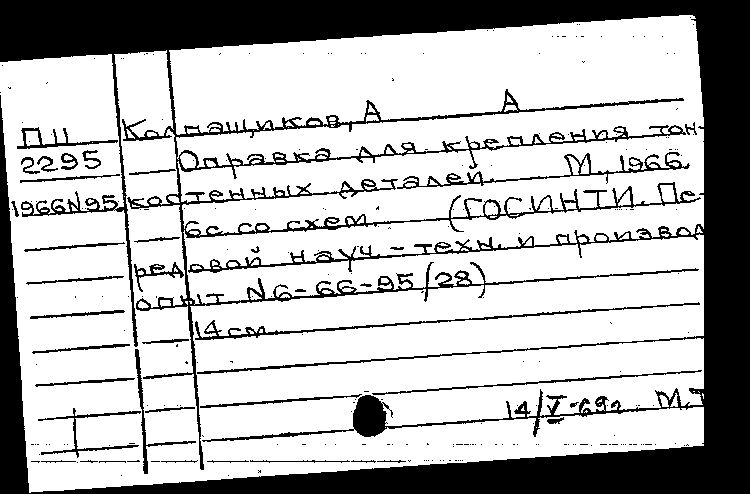 П11 Колпащиков, А А
2295 Оправка для крепления тон-
1966N95 костенных деталей. М., 1966.
6с. со схем. (ГОСИНТИ. Пе-
редовой науч.-техн. и производ
опыт N6-66-95/28)
14см.
14/V-69г. М.Т